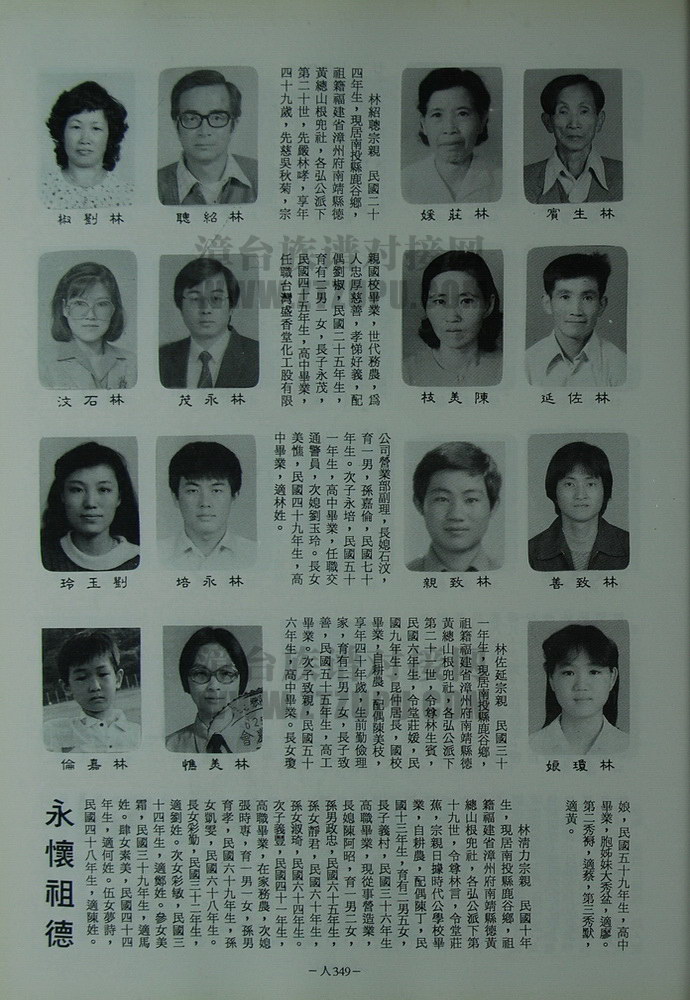 林生賓
林莊媛
林紹聰
林劉椒
林佐延
陳美枝
林永茂
林石汶
林致善
林致親
林永培
劉玉玲
林瓊娘
林美憔
林嘉倫
林紹聰宗親　民國二十
四年生,現居南投縣鹿谷鄉,
祖籍福建省漳州府南靖縣德
黃總山根兜社,各弘公派下
第二十世,先嚴林哮,享年
四十九歲,先慈吳秋菊,宗
親國校畢業,世代務農,為
人忠厚慈善,孝悌好義,配
偶劉椒,民國二十五年生,
育有二男二女,長子永茂,
民國四十五年生,高中畢業,
任職台灣盛香堂化工股有限
公司營業部副理,長媳石汶,
育一男,孫嘉倫,民國七十
年生。次子永培,民國五十
一年生,高中畢業,任職交
通警員,次媳劉玉玲。長女
美憔,民國四十九年生,高
中畢業,適林姓。
林佐延宗親　民國三十
一年生,現居南投縣鹿谷鄉,
祖籍福建省漳州府南靖縣德
黃總山根兜社,各弘公派下
第二十一世,令尊林生賓,
民國六年生,令堂莊媛,民
國九年生,昆仲居長,國校
畢業,自耕農,配偶陳美枝,
享年四十歲,生前勤儉理
家,育有二男一女,長子致
善,民國五十五年生,高工
畢業。次子致親,民國五十
六年生,高中畢業。長女瓊
娘,民國五十九年生,高中
畢業,胞姊妹大秀盆,適廖。
第二秀壽,適蔡,第三秀默,
適黃。
林清力宗親　民國十年
生,現居南投縣鹿谷鄉,祖
籍福建省漳州府南靖縣德黃
總山根兜社,各弘公派下第
十九世,令尊林言,令堂莊
蕉,宗親日據時代公學校畢
業,自耕農,配偶陳丁,民
國十三年生,育有二男五女,
長子義村,民國三十六年生
高職畢業,現從事營造業,
長媳陳阿昭,育一男二女,
孫男政忠,民國六十五年生,
孫女靜君,民國六十年生,
孫女淑琦,民國六十四年生。
次子義豐,民國四十一年生,
高職畢業,在家務農,次媳
張時專,育一男一女,孫男
育孝,民國六十九年生,孫
女凱雯,民國六十八年生。
長女彩勤,民國三十二年生,
適劉姓。次女彩敏,民國三
十四年生,適鄭姓。參女美
霜,民國三十九年生,適馬
姓。肆女素美,民國四十四
年生,適何姓。伍女夢詩,
民國四十八年生,適陳姓。
永懷祖德
－人349－
漳台族谱对接网